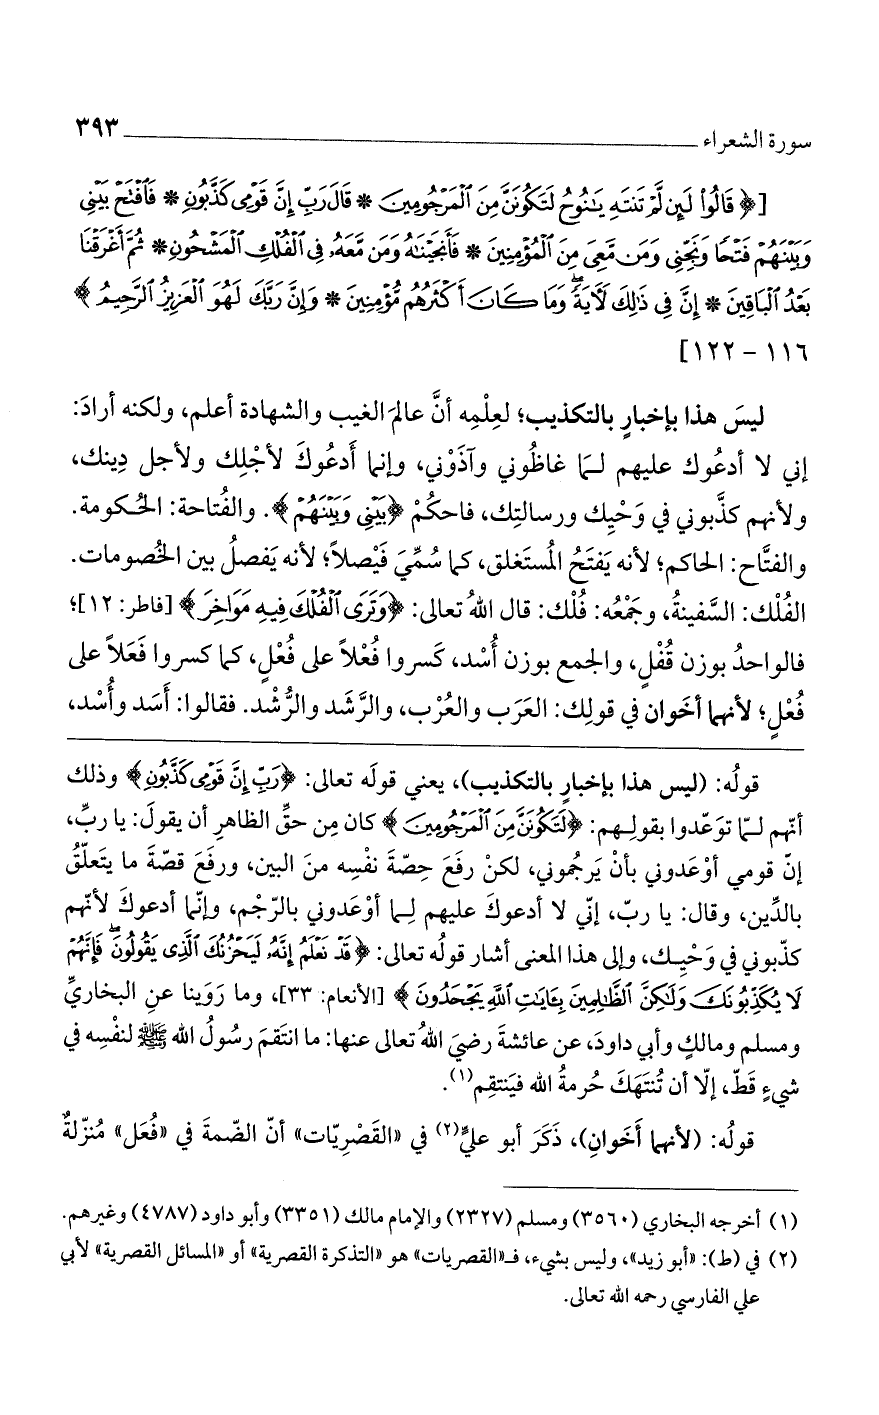 سورة الشعراء ٣٩٣
[﴿ قَالُوا۟ لَئِن لَّمْ تَنتَهِ يَـٰنُوحُ لَتَكُونَنَّ مِنَ ٱلْمَرْجُومِينَ * قَالَ رَبِّ إِنَّ قَوْمِى كَذَّبُونِ * فَٱفْتَحْ بَيْنِى
وَبَيْنَهُمْ فَتْحًا وَنَجِّنِى وَمَن مَّعِىَ مِنَ ٱلْمُؤْمِنِينَ * فَأَنجَيْنَـٰهُ وَمَن مَّعَهُۥ فِى ٱلْفُلْكِ ٱلْمَشْحُونِ * ثُمَّ أَغْرَقْنَا
بَعْدُ ٱلْبَاقِينَ * إِنَّ فِى ذَٰلِكَ لَآيَةً ۖ وَمَا كَانَ أَكْثَرُهُم مُّؤْمِنِينَ * وَإِنَّ رَبَّكَ لَهُوَ ٱلْعَزِيزُ ٱلرَّحِيمُ ﴾
١١٦ – ١٢٢]
ليسَ هذا بإخبارٍ بالتكذيب؛ لعِلْمِه أنَّ عالمَ الغيب والشهادة أعلم، ولكنه أرادَ:
إني لا أدعُوك عليهم لـمَا غاظُوني وآذَوْني، وإنما أَدعُوكَ لأجْلِك ولأجل دِينك،
ولأنهم كذَّبوني في وَحْيِك ورسالتِك، فاحكُمْ ﴿بَيْنِى وَبَيْنَهُمْ﴾. والفُتاحة: الحُكومة.
والفتَّاح: الحاكم؛ لأنه يَفتَحُ المُستَغلق، كما سُمِّيَ فَيْصلاً؛ لأنه يَفصلُ بين الخُصومات.
الفُلْك: السَّفينةُ، وجَمْعُه: فُلْك: قال اللهُ تعالى: ﴿وَتَرَى ٱلْفُلْكَ فِيهِ مَوَاخِرَ﴾ [فاطر: ١٢]؛
فالواحدُ بوزن قُفْلٍ، والجمع بوزن أُسْد، كَسروا فُعْلاً على فُعْلٍ، كما كسروا فَعَلاً على
فُعْلٍ؛ لأنهما أخَوان في قولِك: العَرَب والعُرْب، والرَّشَد والرُّشْد. فقالوا: أَسَد وأُسْد،
قولُه: (ليس هذا بإخبارٍ بالتكذيب)، يعني قولَه تعالى: ﴿رَبِّ إِنَّ قَوْمِى كَذَّبُونِ﴾ وذلك
أنّهم لـمّا توَعّدوا بقولـهم: ﴿لَتَكُونَنَّ مِنَ ٱلْمَرْجُومِينَ﴾ كان مِن حقِّ الظاهرِ أن يقولَ: يا ربِّ،
إنّ قومي أوْعَدوني بأنْ يَرجُموني، لكنْ رفَعَ حِصّةَ نفْسِه منَ البين، ورفَعَ قصّةَ ما يتَعلّقُ
بالدِّين، وقال: يا ربّ، إنّي لا أدعوكَ عليهم لِـما أوْعَدوني بالرّجْم، وإنّما أدعوكَ لأنّهم
كذّبوني في وَحْيِـك، وإلى هذا المعنى أشار قولُه تعالى: ﴿قَدْ نَعْلَمُ إِنَّهُۥ لَيَحْزُنُكَ ٱلَّذِى يَقُولُونَ ۖ فَإِنَّهُمْ
لَا يُكَذِّبُونَكَ وَلَـٰكِنَّ ٱلظَّـٰلِمِينَ بِـَٔايَـٰتِ ٱللَّهِ يَجْحَدُونَ﴾ [الأنعام: ٣٣]، وما رَوَينا عنِ البخاريِّ
ومسلم ومالكٍ وأبي داودَ، عن عائشةَ رضيَ اللهُ تعالى عنها: ما انتَقمَ رسُولُ الله ﷺ لنفْسِه في
شيءٍ قَطّ، إلّا أن تُنتَهَكَ حُرمةُ الله فيَنتقِم(١).
قولُه: (لأنهما أَخَوانِ)، ذَكَرَ أبو عليٍّ(٢) في «القَصْرِيّات» أنّ الضّمةَ في «فُعَل» مُنزّلةٌ
(١) أخرجه البخاري (٣٥٦٠) ومسلم (٢٣٢٧) والإمام مالك (٣٣٥١) وأبو داود (٤٧٨٧) وغيرهم.
(٢) في (ط): «أبو زيد»، وليس بشيء، فـ«القصريات» هو «التذكرة القصرية» أو «المسائل القصرية» لأبي
علي الفارسي رحمه الله تعالى.